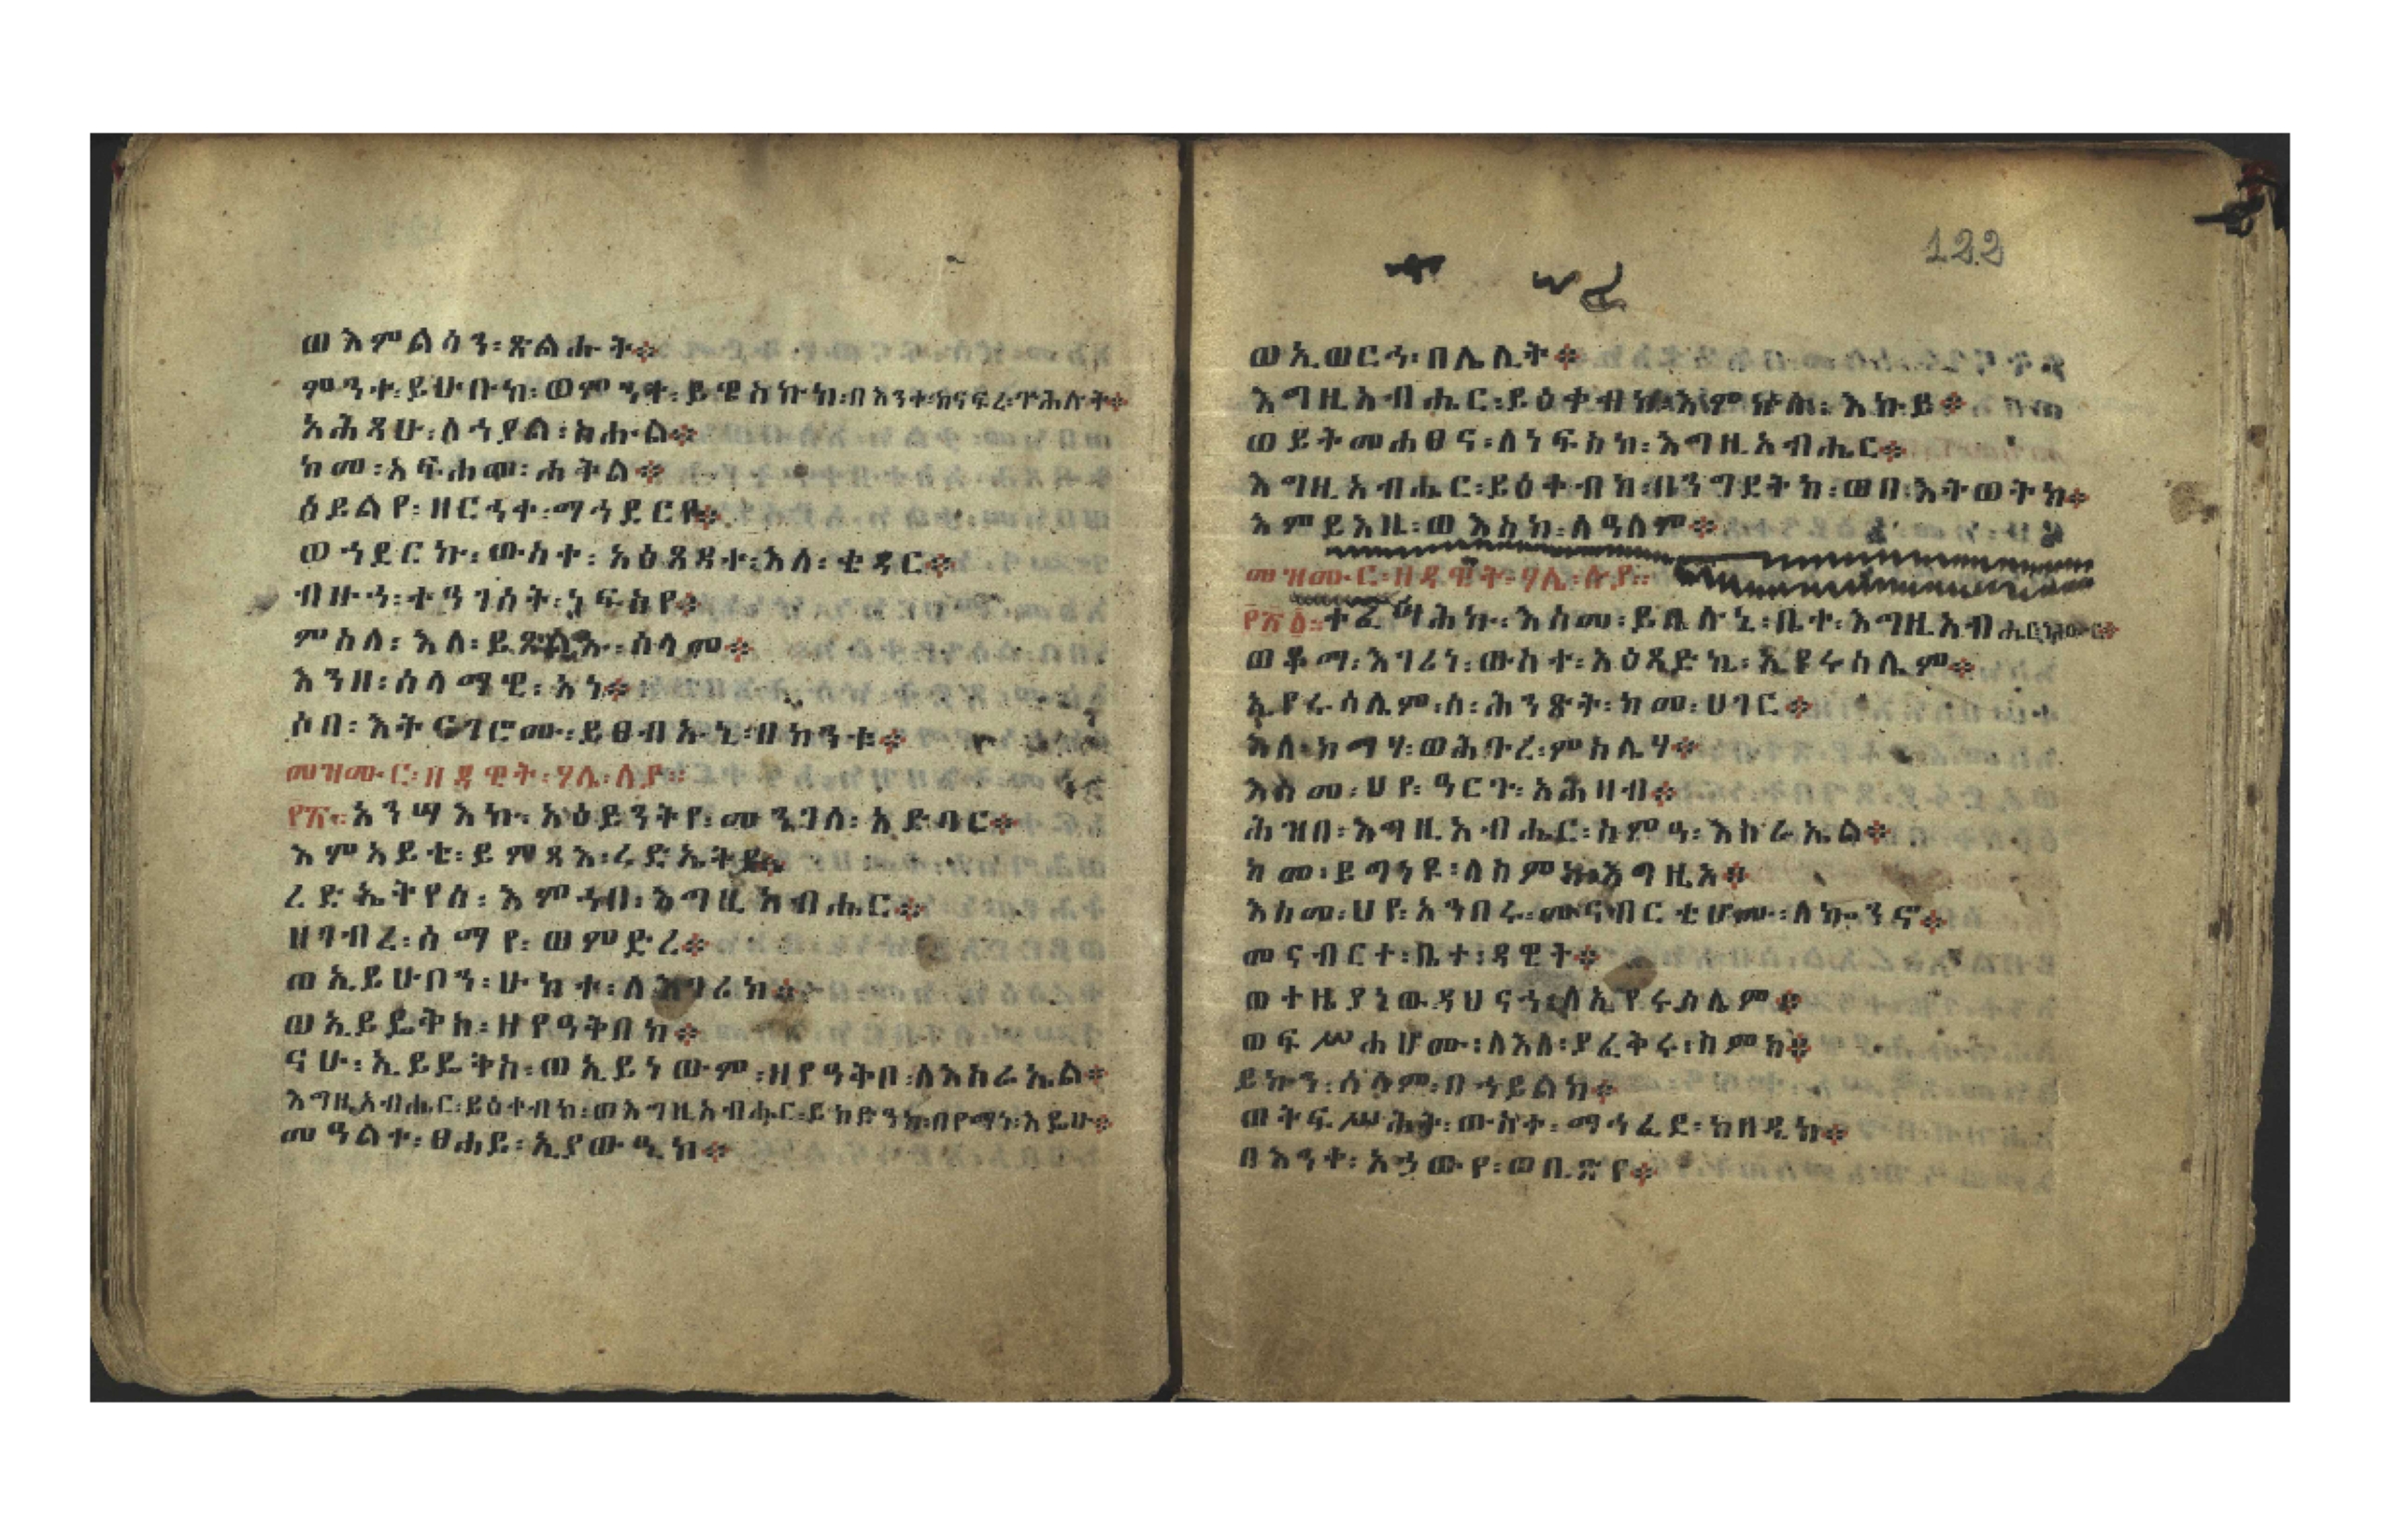 ወእምልሳን፡ጽልሑት፨
ምንተ፡ይሁቡከ፡ወምንተ፡ይዌስኩከ፡በእንተ፡ከናፍረ፡ጕሕሉት፨
አሕጻሁ፡ለኀያል፡ስሑል፨
ከመ፡አፍሐመ፡ሐትል፨
ዕይልየ፡ዘርኅተ፡ማኅደርየ፨
ወኀደርኩ፡ውስተ፡አዕጻዳተ፡እለ፡ቄዳር፨
ብዙኀ፡ተዓገሰት፡ነፍስየ፨
ምስለ፡እለ፡ይጸልኡ፡ሰላመ፨
እንዘ፡ሰላማዊ፡አነ፨
ሶበ፡እትናገሮሙ፡ይፀብኡኒ፡በከንቱ፨
መዝሙር፡ዘዳዊት፡ሃሌ፡ሉያ፡፡
፻፳፡አንሣእኩ፡አዕይንትየ፡መንገለ፡አድባር፨
እምአይቴ፡ይምጻእ፡ረድኤትየ፨
ረድኤትየሰ፡እምኀበ፡እግዚአብሔር፨
ዘገብረ፡ሰማየ፡ወምድረ፨
ወኢይሁቦን፡ሁከተ፡ለእገሪከ፨
ወኢይዴቅስ፡ዘየዓቅበከ፨
ናሁ፡ኢይዴቅስ፡ወኢይነውም፡ዘየዓቅቦ፡ለእስራኤል፨
እግዚአብሔር፡ይዕቀብከ፡ወእግዚአብሔር፡ይክድንከ፡በየማነ፡እዴሁ፨
መዓልተ፡ፀሐይ፡ኢያውዒከ፨
122
ወኢወርኅ፡በሌሊት፨
እግዚአብሔር፡ይዕቀብከ፡እምኵሉ፡እኩይ፨
ወይትመሐፀና፡ለነፍስከ፡እግዚአብሔር፨
እግዚአብሔር፡ይዕቀብከ፡በንግደትከ፡ወበ፡እትወትከ፨
እምይእዜ፡ወእስከ፡ለዓለም፨
መዝሙር፡ዘዳዊት፡ሃሌ፡ሉያ፡፡
፻፳፩፡ተፈሣሕኩ፡እስመ፡ይቤሉኒ፡ቤተ፡እግዚአብሔር፡ነሐውር፨
ወቆማ፡እገሪነ፡ውስተ፡አዕጻድኪ፡ኢየሩሳሌም፨
ኢየሩሳሌም፡ሰ፡ሕንጽት፡ከመ፡ሀገር፨
እለ፡ከማሃ፡ወሕቡረ፡ምስሌሃ፨
እስመ፡ህየ፡ዓርጉ፡አሕዛብ፨
ሕዝበ፡እግዚአብሔር፡ስምዓ፡እስራኤል፨
ከመ፡ይግነዩ፡ለስምከ፡እግዚአ፨
እስመ፡ህየ፡አንበሩ፡መናብርቲሆሙ፡ለኰንኖ፨
መናብርተ፡ቤተ፡ዳዊት፨
ወተዜያነው፡ዳህናኀ፡ለኢየሩሳሌም፨
ወፍሥሐሆሙ፡ለእለ፡ያፈቅሩ፡ስምከ፨
ይኩን፡ሰላም፡በኀይልከ፨
ወትፍሥሕት፡ውስተ፡ማኅፈደ፡ክበዲከ፨
በእንተ፡አኃውየ፡ወቢጽየ፨